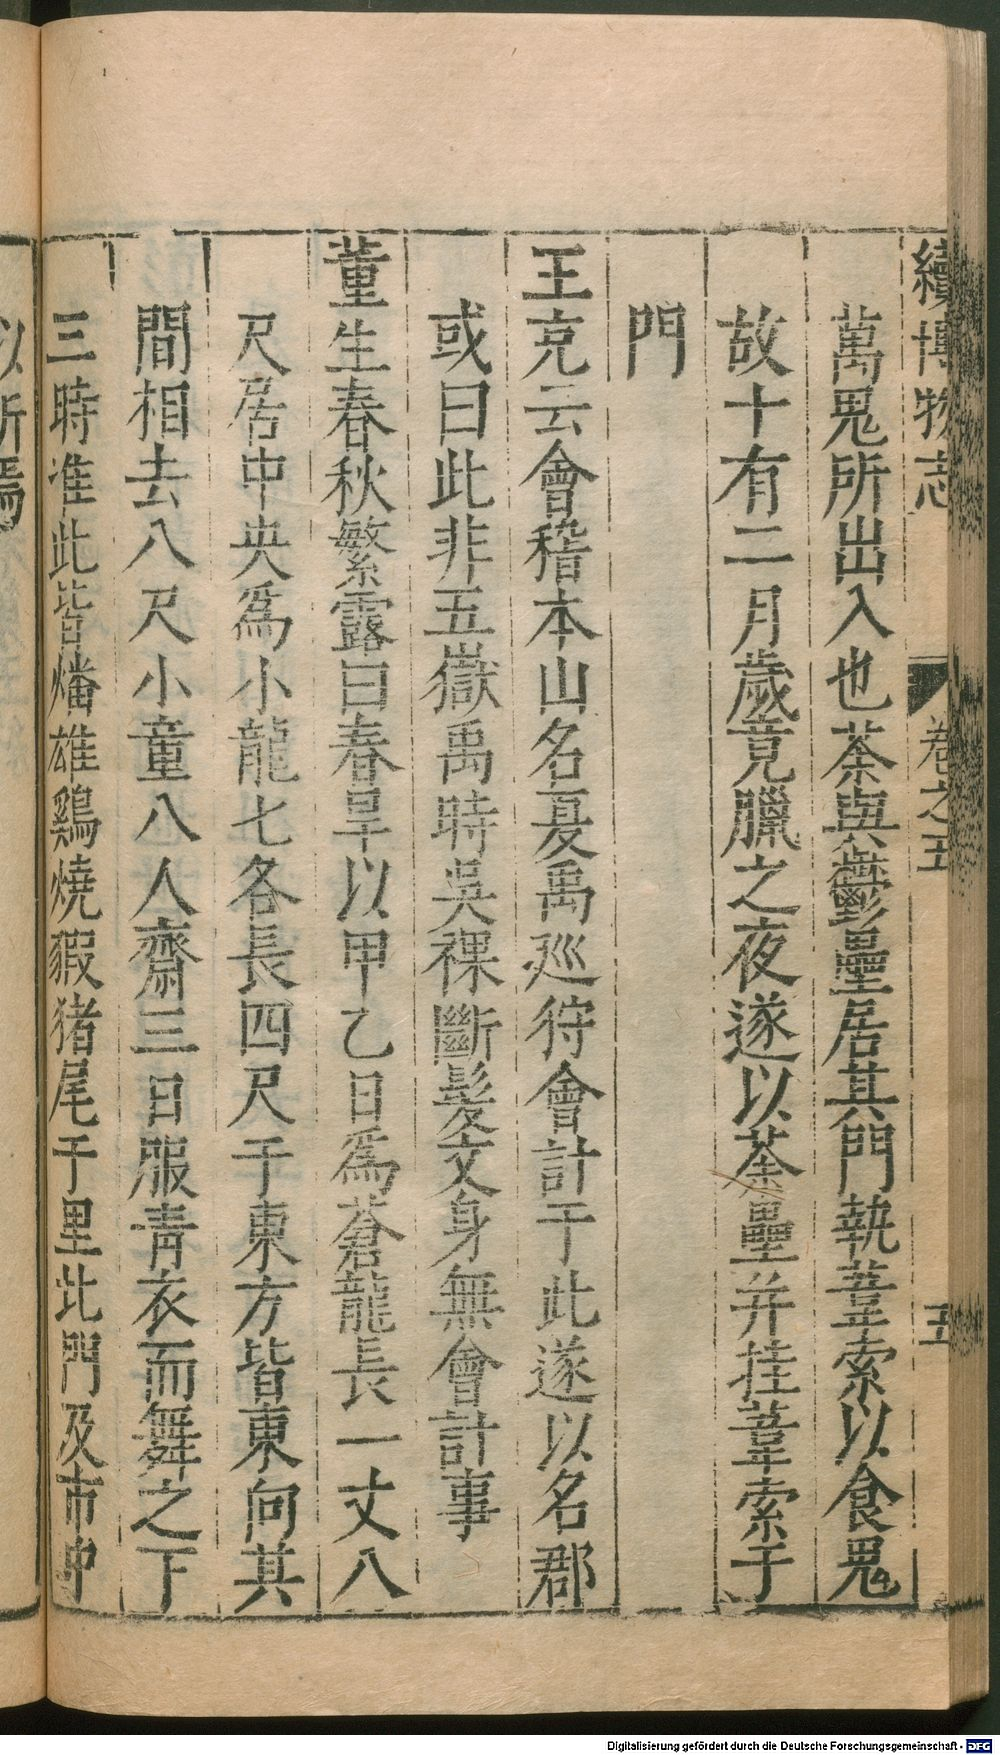 續博物志 卷之五 五
萬鬼所出入也荼與鬱壘居其門執葦索以食鬼
故十有二月歲竟臘之夜遂以荼壘并挂葦索于
門
王充云會稽本山名夏禹廵狩會計于此遂以名郡
或曰此非五嶽禹時吳裸斷髮文身無會計事
董生春秋繁露曰春旱以甲乙日爲蒼龍長一丈八
尺居中央爲小龍七各長四尺于東方皆東向其
間相去八尺小童八人齋三日服靑衣而舞之下
三時准此皆燔雄鷄燒豭猪尾于里北門及市中
以祈焉
Digitalisierung gefördert durch die Deutsche Forschungsgemeinschaft - DFG